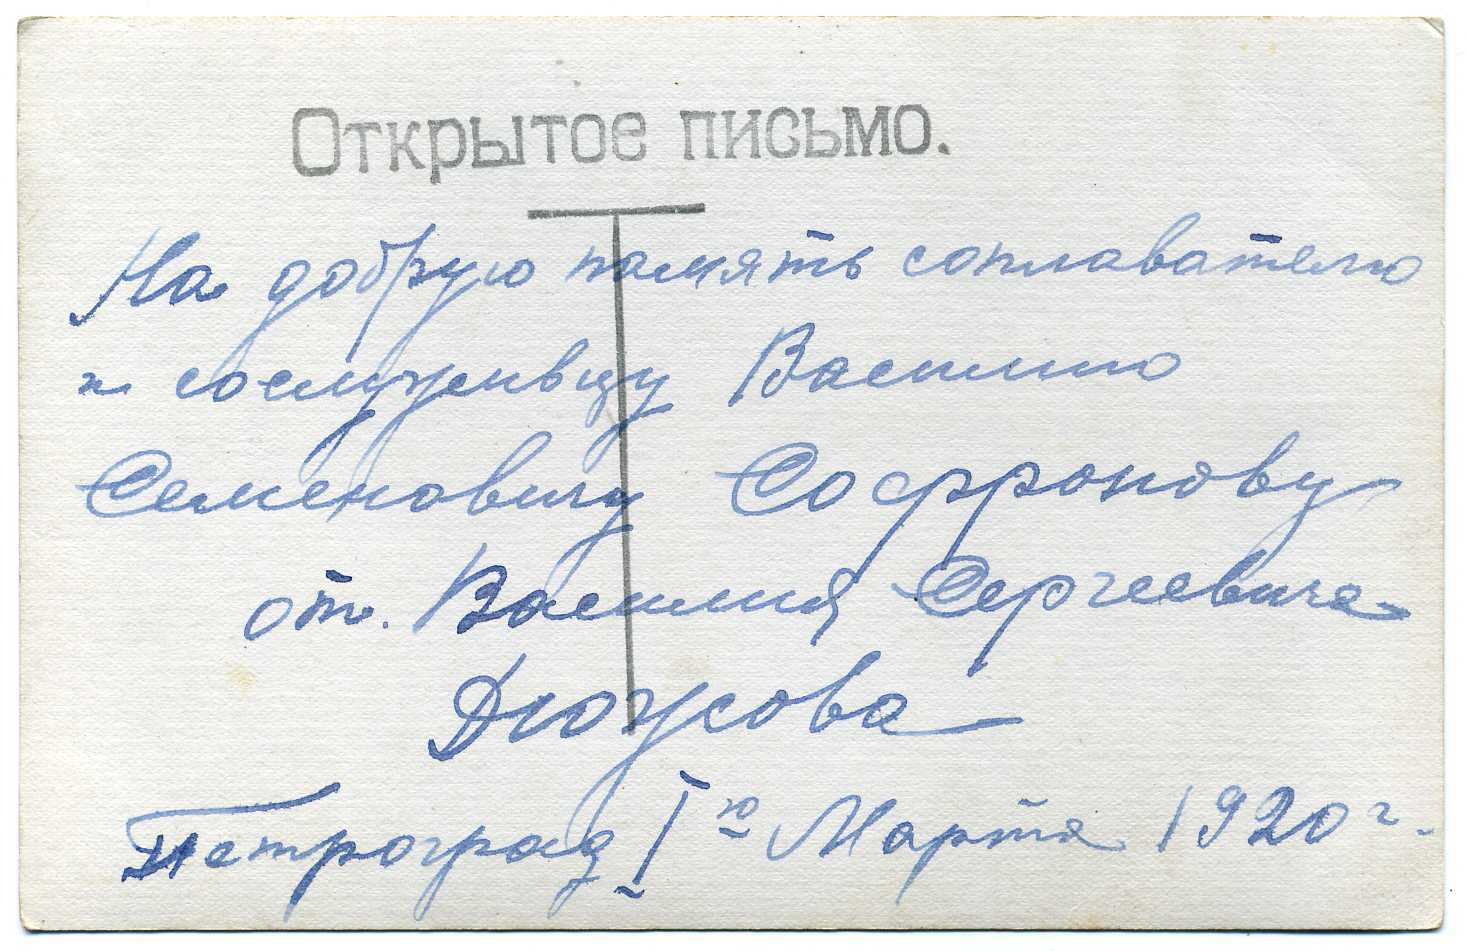 Открытое письмо.
На добрую память соплавателю
и сослуживцу Василию
Семеновичу Софронову
от. Василия Сергеевича
Дюусова
Петроград 1го Марта 1920 г.